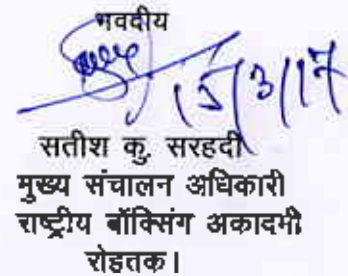 भवदीय
15/3/17
सतीश कु. सरहदी
मुख्य संचालन अधिकारी
राष्ट्रीय बॉक्सिंग अकादमी
रोहतक।